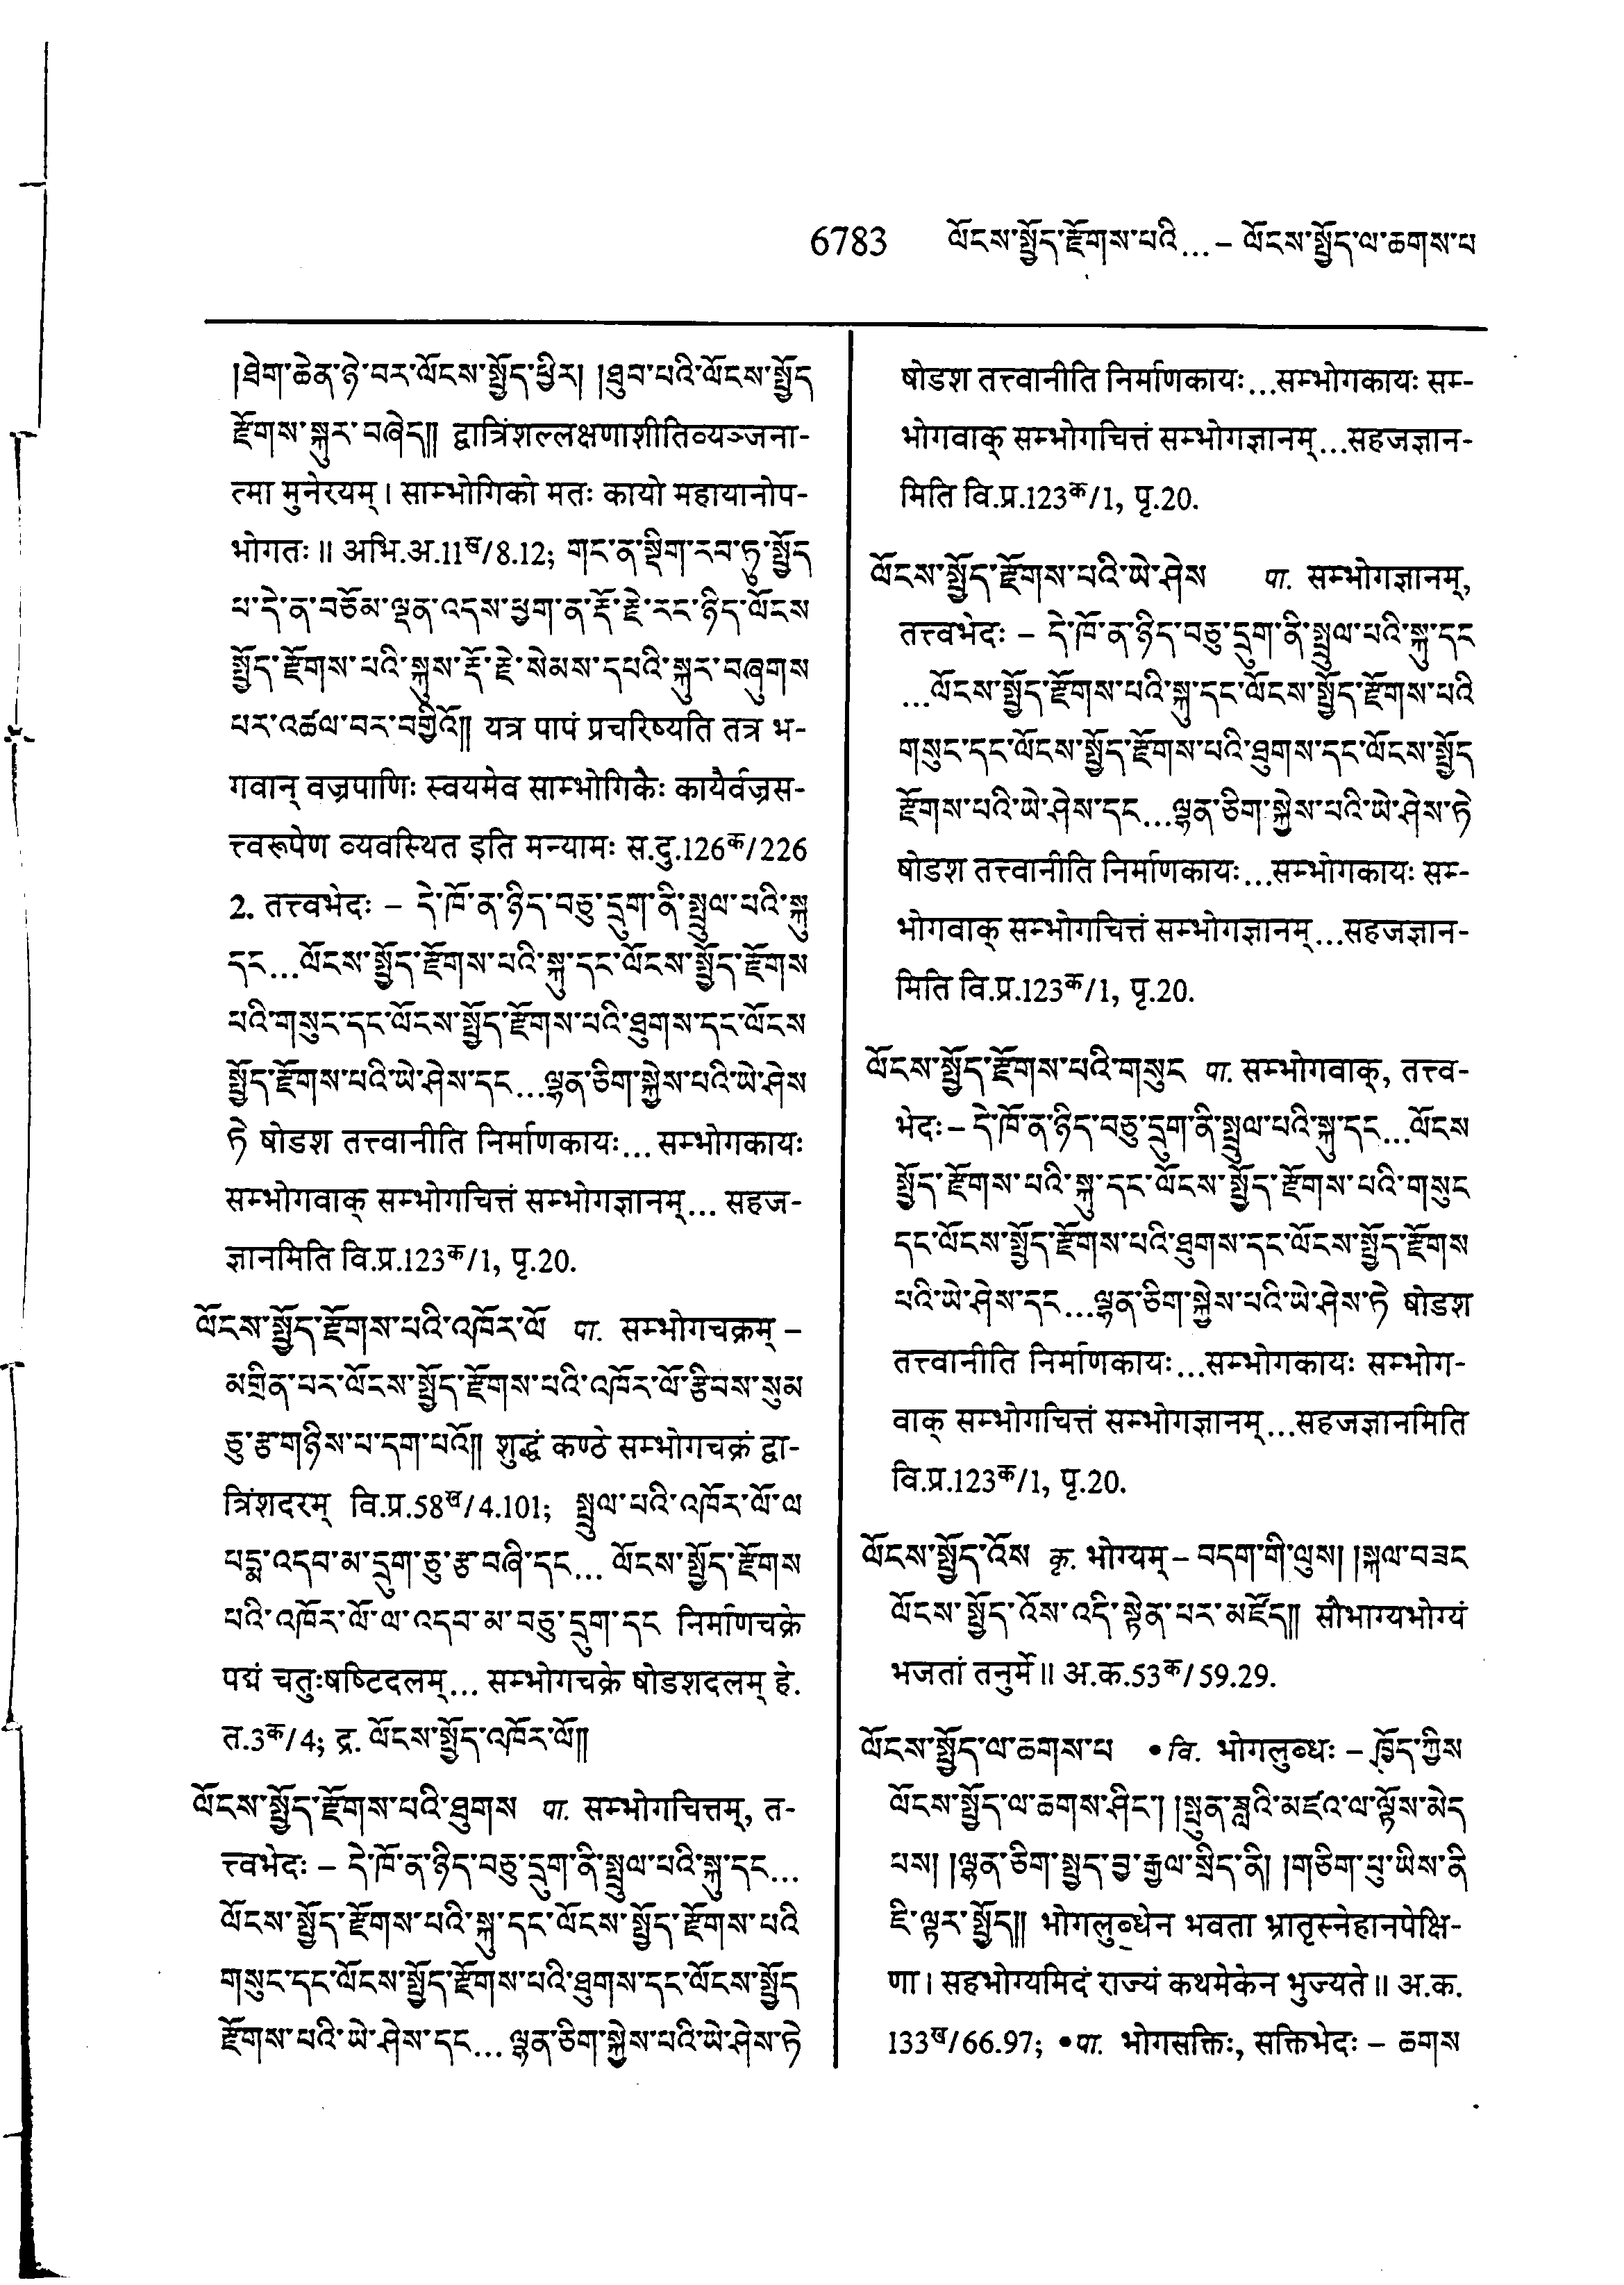 6783 ལོངས་སྤྱོད་རྫོགས་པའི...– ལོངས་སྤྱོད་ལ་ཆགས་པ
།ཐེག་ཆེན་ཉེ་བར་ལོངས་སྤྱོད་ཕྱིར། །ཐུབ་པའི་ལོངས་སྤྱོད
རྫོགས་སྐུར་བཞེད༎ द्वात्रिंशल्लक्षणाशीतिव्यञ्जना-
त्मा मुनेरयम्। साम्भोगिको मतः कायो महायानोप-
भोगतः॥ अभि.अ.11ख/8.12; གང་ན་སྡིག་རབ་ཏུ་སྤྱོད
པ་དེ་ན་བཅོམ་ལྡན་འདས་ཕྱག་ན་རྡོ་རྗེ་རང་ཉིད་ལོངས
སྤྱོད་རྫོགས་པའི་སྐུས་རྡོ་རྗེ་སེམས་དཔའི་སྐུར་བཞུགས
པར་འཚལ་བར་བགྱིའོ༎ यत्र पापं प्रचरिष्यति तत्र भ-
गवान् वज्रपाणिः स्वयमेव साम्भोगिकैः कायैर्वज्रस-
त्त्वरूपेण व्यवस्थित इति मन्यामः स.दु.126क/226
2. तत्त्वभेदः – དེ་ཁོ་ན་ཉིད་བཅུ་དྲུག་ནི་སྤྲུལ་པའི་སྐུ
དང...ལོངས་སྤྱོད་རྫོགས་པའི་སྐུ་དང་ལོངས་སྤྱོད་རྫོགས
པའི་གསུང་དང་ལོངས་སྤྱོད་རྫོགས་པའི་ཐུགས་དང་ལོངས
སྤྱོད་རྫོགས་པའི་ཡེ་ཤེས་དང...ལྷན་ཅིག་སྐྱེས་པའི་ཡེ་ཤེས
ཏེ षोडश तत्त्वानीति निर्माणकायः... सम्भोगकायः
सम्भोगवाक् सम्भोगचित्तं सम्भोगज्ञानम्... सहज-
ज्ञानमिति वि.प्र.123क/1, पृ.20.
ལོངས་སྤྱོད་རྫོགས་པའི་འཁོར་ལོ पा. सम्भोगचक्रम् –
མགྲིན་པར་ལོངས་སྤྱོད་རྫོགས་པའི་འཁོར་ལོ་རྩིབས་སུམ
ཅུ་རྩ་གཉིས་པ་དག་པའོ༎ शुद्धं कण्ठे सम्भोगचक्रं द्वा-
त्रिंशदरम् वि.प्र.58ख/4.101; སྤྲུལ་པའི་འཁོར་ལོ་ལ
པདྨ་འདབ་མ་དྲུག་ཅུ་རྩ་བཞི་དང... ལོངས་སྤྱོད་རྫོགས
པའི་འཁོར་ལོ་ལ་འདབ་མ་བཅུ་དྲུག་དང निर्माणचक्रे
पद्मं चतुःषष्टिदलम्... सम्भोगचक्रे षोडशदलम् हे.
त.3क/4; द्र. ལོངས་སྤྱོད་འཁོར་ལོ༎
ལོངས་སྤྱོད་རྫོགས་པའི་ཐུགས पा. सम्भोगचित्तम्, त-
त्त्वभेदः – དེ་ཁོ་ན་ཉིད་བཅུ་དྲུག་ནི་སྤྲུལ་པའི་སྐུ་དང...
ལོངས་སྤྱོད་རྫོགས་པའི་སྐུ་དང་ལོངས་སྤྱོད་རྫོགས་པའི
གསུང་དང་ལོངས་སྤྱོད་རྫོགས་པའི་ཐུགས་དང་ལོངས་སྤྱོད
རྫོགས་པའི་ཡེ་ཤེས་དང... ལྷན་ཅིག་སྐྱེས་པའི་ཡེ་ཤེས་ཏེ
षोडश तत्त्वानीति निर्माणकायः...सम्भोगकायः सम्-
भोगवाक् सम्भोगचित्तं सम्भोगज्ञानम्...सहजज्ञान-
मिति वि.प्र.123क/1, पृ.20.
ལོངས་སྤྱོད་རྫོགས་པའི་ཡེ་ཤེས पा. सम्भोगज्ञानम्,
तत्त्वभेदः – དེ་ཁོ་ན་ཉིད་བཅུ་དྲུག་ནི་སྤྲུལ་པའི་སྐུ་དང
...ལོངས་སྤྱོད་རྫོགས་པའི་སྐུ་དང་ལོངས་སྤྱོད་རྫོགས་པའི
གསུང་དང་ལོངས་སྤྱོད་རྫོགས་པའི་ཐུགས་དང་ལོངས་སྤྱོད
རྫོགས་པའི་ཡེ་ཤེས་དང...ལྷན་ཅིག་སྐྱེས་པའི་ཡེ་ཤེས་ཏེ
षोडश तत्त्वानीति निर्माणकायः...सम्भोगकायः सम्-
भोगवाक् सम्भोगचित्तं सम्भोगज्ञानम्...सहजज्ञान-
मिति वि.प्र.123क/1, पृ.20.
ལོངས་སྤྱོད་རྫོགས་པའི་གསུང पा. सम्भोगवाक्, तत्त्व-
भेदः – དེ་ཁོ་ན་ཉིད་བཅུ་དྲུག་ནི་སྤྲུལ་པའི་སྐུ་དང...ལོངས
སྤྱོད་རྫོགས་པའི་སྐུ་དང་ལོངས་སྤྱོད་རྫོགས་པའི་གསུང
དང་ལོངས་སྤྱོད་རྫོགས་པའི་ཐུགས་དང་ལོངས་སྤྱོད་རྫོགས
པའི་ཡེ་ཤེས་དང...ལྷན་ཅིག་སྐྱེས་པའི་ཡེ་ཤེས་ཏེ षोडश
तत्त्वानीति निर्माणकायः...सम्भोगकायः सम्भोग-
वाक् सम्भोगचित्तं सम्भोगज्ञानम्...सहजज्ञानमिति
वि.प्र.123क/1, पृ.20.
ལོངས་སྤྱོད་འོས कृ. भोग्यम् – བདག་གི་ལུས། །སྐལ་བཟང
ལོངས་སྤྱོད་འོས་འདི་སྟེན་པར་མཛོད༎ सौभाग्यभोग्यं
भजतां तनुर्मे॥ अ.क.53क/59.29.
ལོངས་སྤྱོད་ལ་ཆགས་པ • वि. भोगलुब्धः – ཁྱོད་ཀྱིས
ལོངས་སྤྱོད་ལ་ཆགས་ཤིང་། །སྤུན་ཟླའི་མཛའ་ལ་ལྟོས་མེད
པས། །ལྷན་ཅིག་སྤྱད་བྱ་རྒྱལ་སྲིད་ནི། །གཅིག་པུ་ཡིས་ནི
ཇི་ལྟར་སྤྱོད༎ भोगलुब्धेन भवता भ्रातृस्नेहानपेक्षि-
णा। सहभोग्यमिदं राज्यं कथमेकेन भुज्यते॥ अ.क.
133ख/66.97; • पा. भोगसक्तिः, सक्तिभेदः – ཆགས